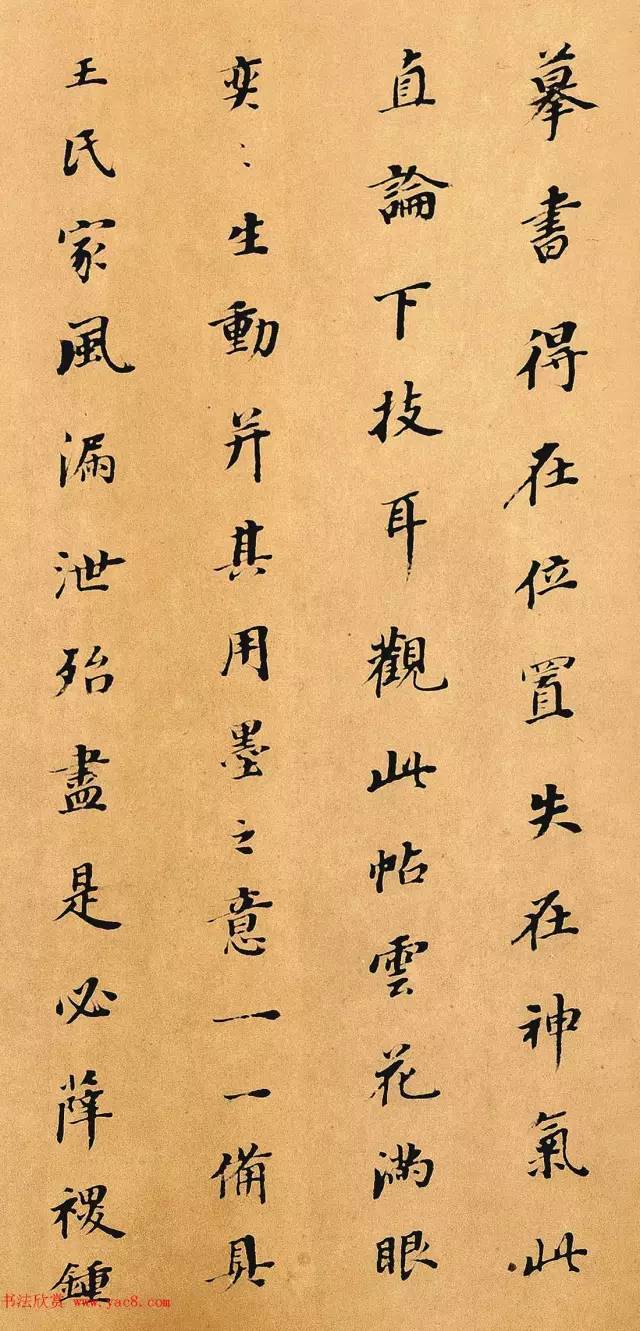 摹書得在位置失在神氣此
直論下技耳觀此帖雲花滿眼
奕〻生動并其用墨之意一一備具
王氏家風漏泄殆盡是必薛稷鍾
书法欣赏 www.yac8.com